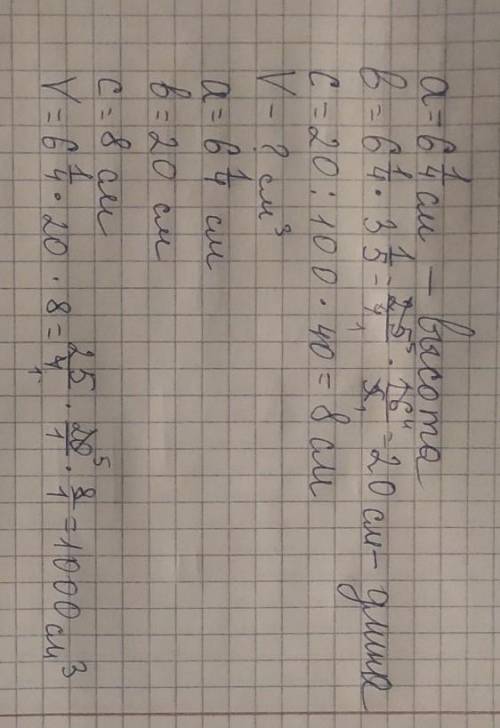 a = 6 1/4 см — высота
в = 6 1/4 · 3 1/5 = 25⁵/4₁ · 16⁴/5₁ = 20 см – длина
c = 20 : 100 · 40 = 8 см
V – ? см³
a = 6 1/4 см
в = 20 см
c = 8 см
V = 6 1/4 · 20 · 8 = 25/4₁ · 20⁵/1 · 8/1 = 1000 см³